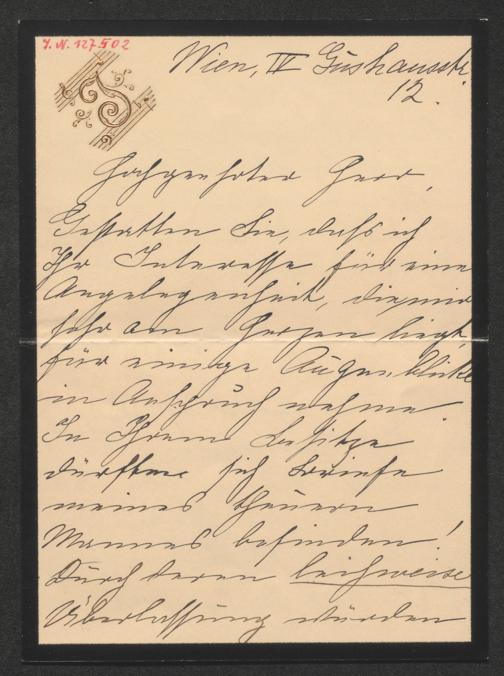 J.N. 127.502
Wien, IV Gusshausstr
12.
Hochgeehrter Herr,
Gestatten Sie, dass ich
Ihr Interesse für eine
Angelegenheit, die mir
sehr am Herzen liegt,
für einige Augenblicke
in Anspruch nehme
In Ihrem Besitze
dürften sich Briefe
meines theuern
Mannes befinden!
Durch deren leihweise
Überlassung würden